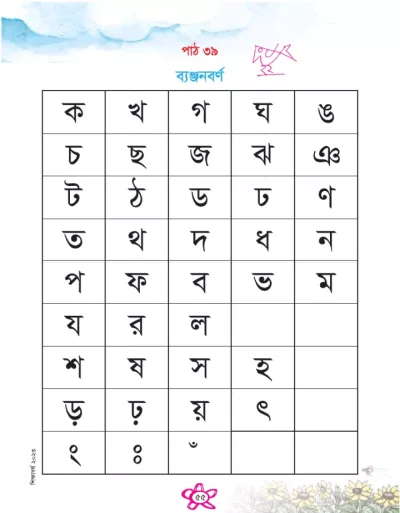 পাঠ ৩৯
ব্যঞ্জনবর্ণ
ক খ গ ঘ ঙ
চ ছ জ ঝ ঞ
ট ঠ ড ঢ ণ
ত থ দ ধ ন
প ফ ব ভ ম
য র ল
শ ষ স হ
ড় ঢ় য় ৎ
ং ঃ ঁ
শিক্ষাবর্ষ ২০২৩
৫৫